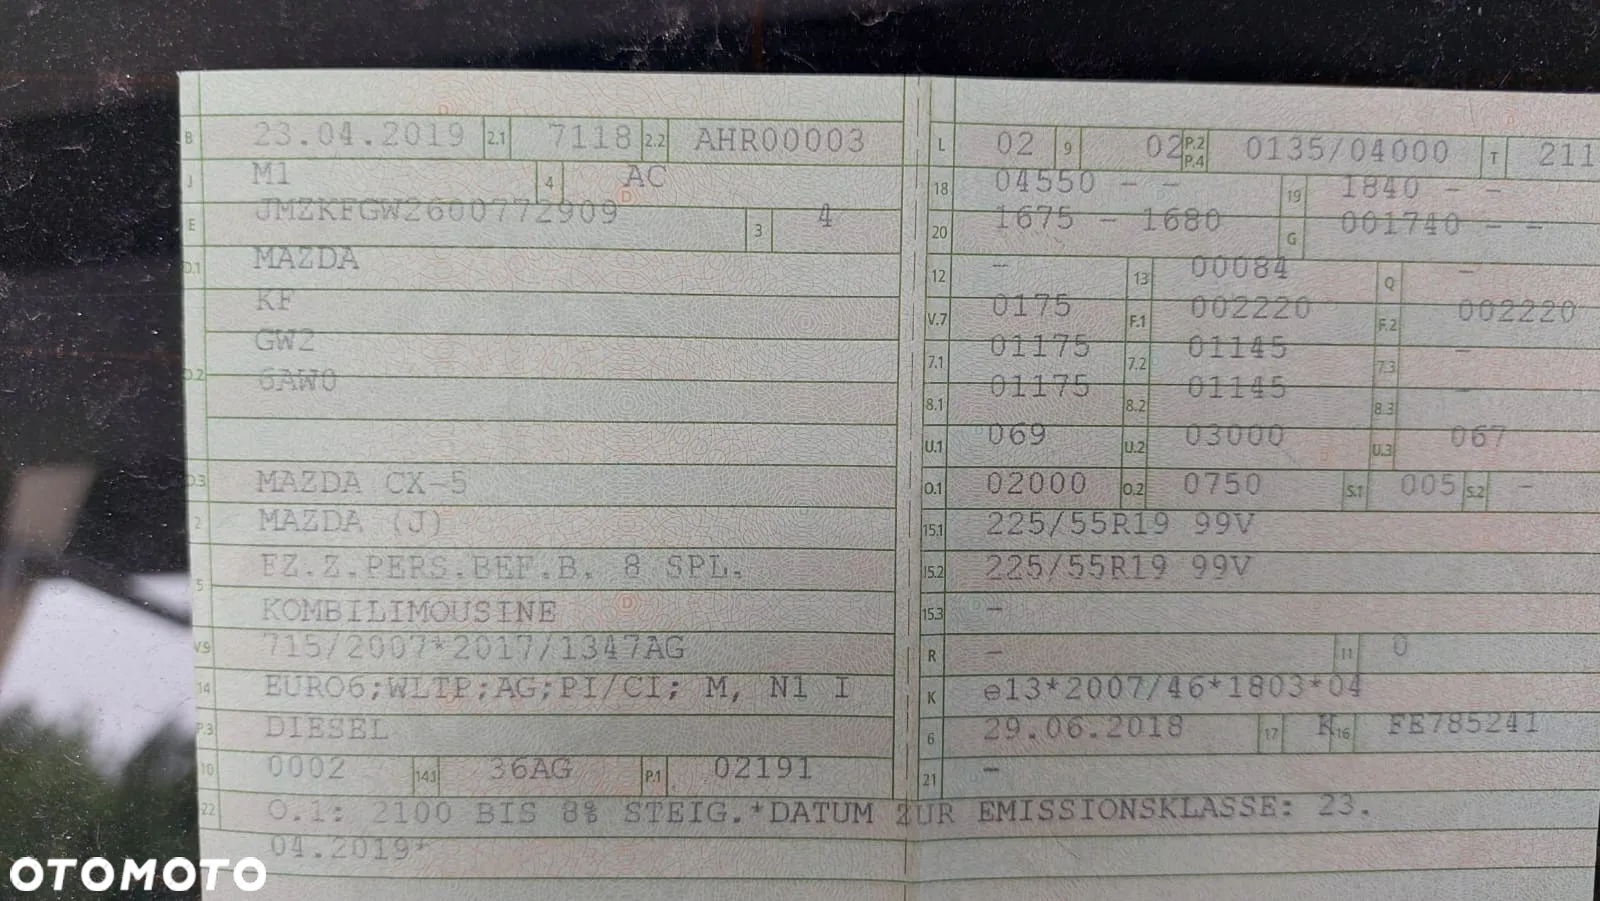 B 23.04.2019 2.1 7118 2.2 AHR00003
J M1 4 AC
E JMZKFGW2600772909 3 4
D.1 MAZDA
KF
GW2
D.2 6AW0
D.3 MAZDA CX-5
2 MAZDA (J)
5 FZ.Z.PERS.BEF.B. 8 SPL.
KOMBILIMOUSINE
V.9 715/2007*2017/1347AG
14 EURO6;WLTP;AG;PI/CI; M, N1 I
P.3 DIESEL
10 0002 14.1 36AG P.1 02191
L 02 9 02 P.2 P.4 0135/04000 T 211
18 04550 - - 19 1840 - -
20 1675 - 1680 G 001740 - -
12 - 13 00084 Q -
V.7 0175 F.1 002220 F.2 002220
7.1 01175 7.2 01145 7.3 -
8.1 01175 8.2 01145 8.3 -
U.1 069 U.2 03000 U.3 067
O.1 02000 O.2 0750 S.1 005 S.2 -
15.1 225/55R19 99V
15.2 225/55R19 99V
15.3 -
R - 11 0
K e13*2007/46*1803*04
6 29.06.2018 17 K 16 FE785241
21 -
22 O.1: 2100 BIS 8% STEIG.*DATUM ZUR EMISSIONSKLASSE: 23.
04.2019*
OTOMOTO